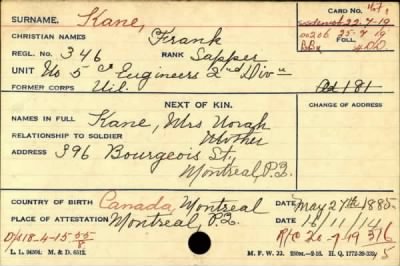 SURNAME. Kane,
CARD NO.
22-4-19
CHRISTIAN NAMES Frank
25-4-19
REGL. NO. 346 RANK Sapper
FOLL.
UNIT No 5 Engineers 2nd Divn
FORMER CORPS Nil.
NEXT OF KIN.
CHANGE OF ADDRESS
NAMES IN FULL Kane, Mrs Norah
RELATIONSHIP TO SOLDIER Mother
ADDRESS 396 Bourgeois St.,
Montreal, P.Q.
COUNTRY OF BIRTH Canada, Montreal DATE May 27th 1885
PLACE OF ATTESTATION Montreal, P.Q. DATE 16/11/14
D/A 18-4-15
L. L. 94504. M. & D. 6512. M. F. W. 22. H. Q. 1772-39-339